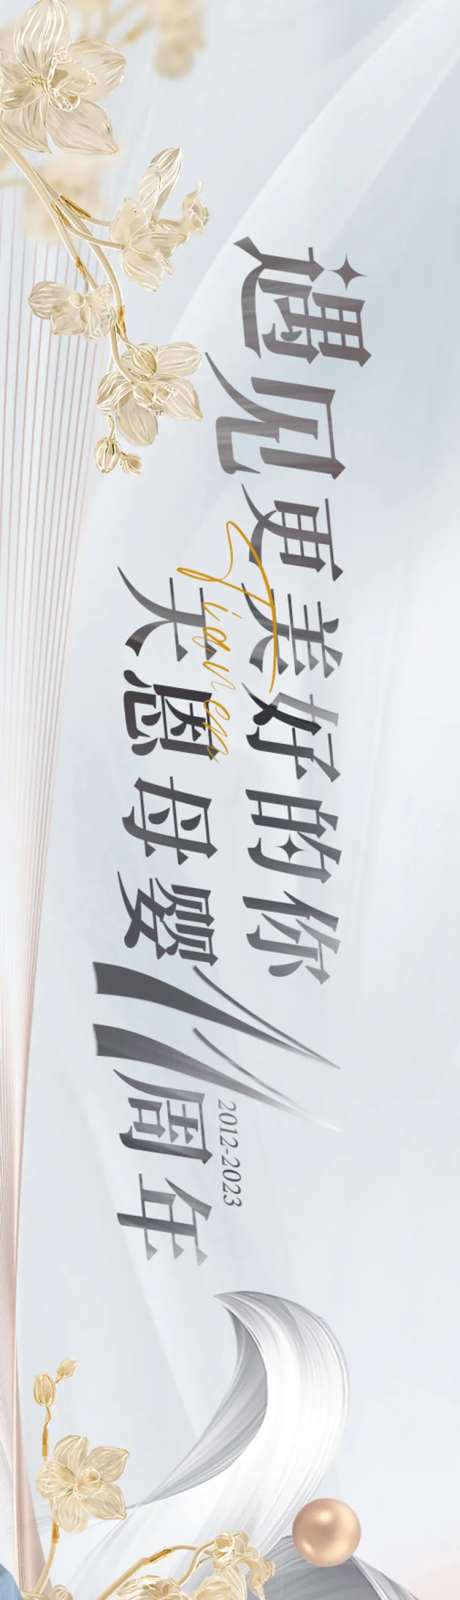 遇见更美好的你
Tianen
天恩母婴11周年
2012-2023